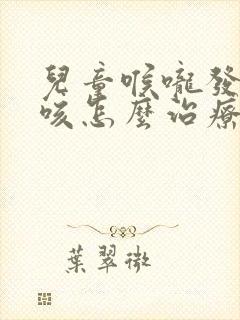 兒童喉嚨發
咳怎麼治療
葉翠微